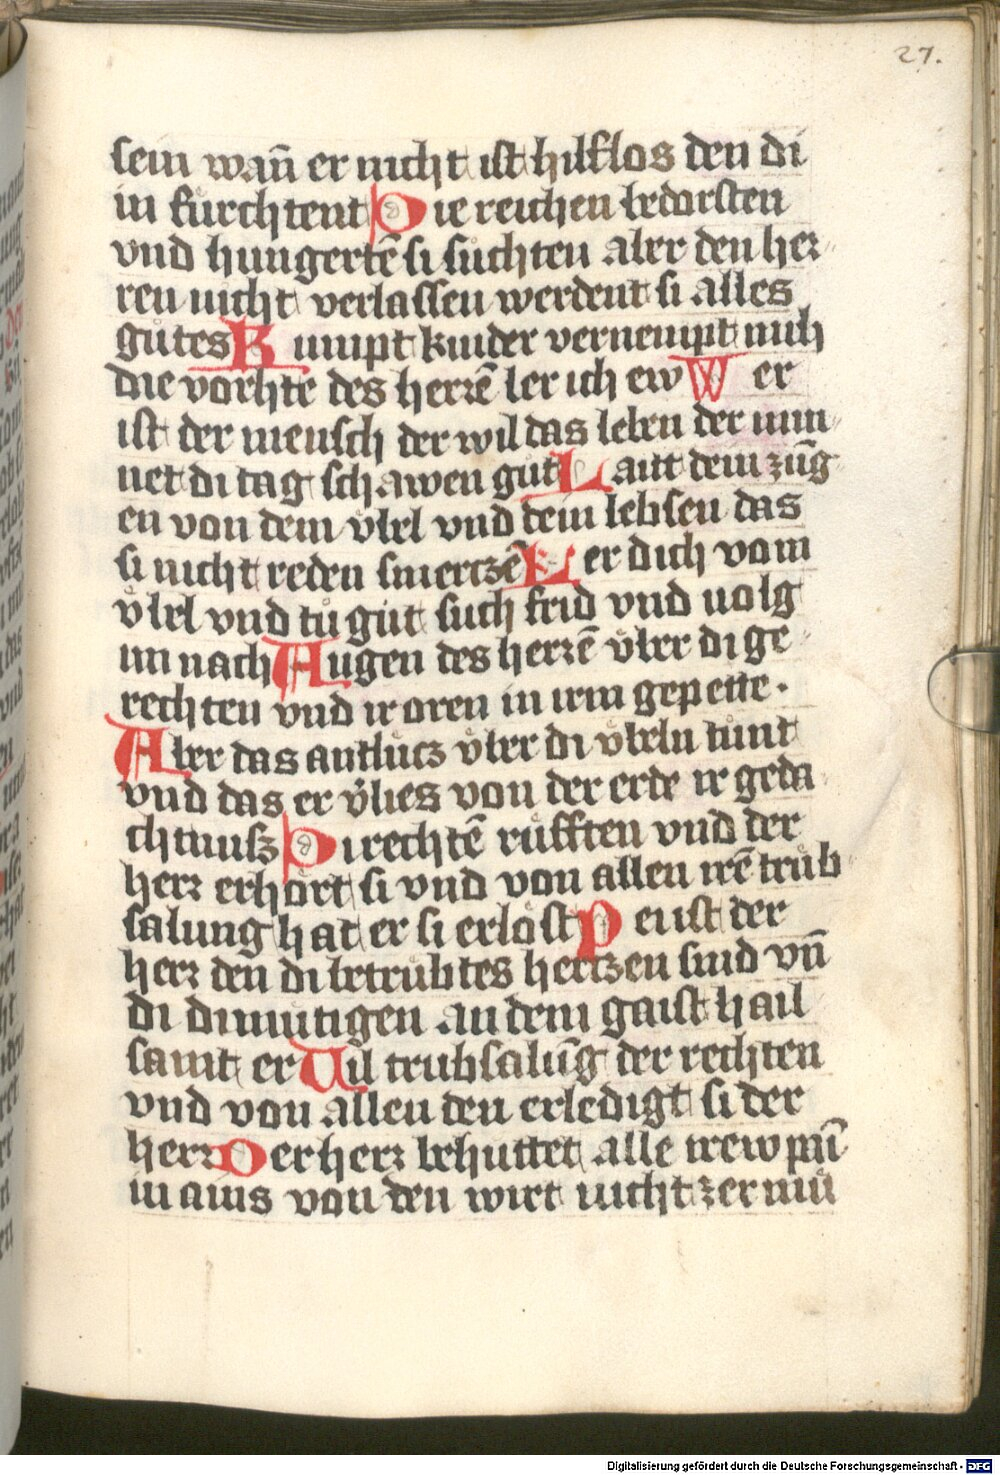 27.
sein wan̄ er nicht ist hilflos den di
in fürchtent Die reichen bedorften
vnd hungertē si sůchten aber den her„
ren nicht verlassen werdent si alles
gůtes Kumpt kinder vernempt mich
die vorhte des herrē ler ich ew Wer
ist der mensch der wil das leben der min„
net di tag schawen gůt Laitt dein zūg„
en von dem v̊bel vnd dein lebsen das
si nicht reden smerczē Ker dich vom
v̊bel vnd tů gůt such frid vnd uolg
im nach Augen des herrē v̊ber di ge„
rechten vnd ir oren in irm gepette.
Aber das antlücz v̊ber di v̊beln tůnt
vnd das er v̊lies von der erde ir geda„
chtnusz Di rechtē růfften vnd der
herr erhört si vnd von allen irē trüb„
salung hat er si erlöst Pei ist der
herr den di betrübtes hertzen sind vn̄
di dimütigen an dem gaist hail
samt er Uil trubsalūg der rechten
vnd von allen den erledigt si der
herr Der herr behüttet alle irew pain̄
in ains von den wirt nicht zermü
Digitalisierung gefördert durch die Deutsche Forschungsgemeinschaft - DFG